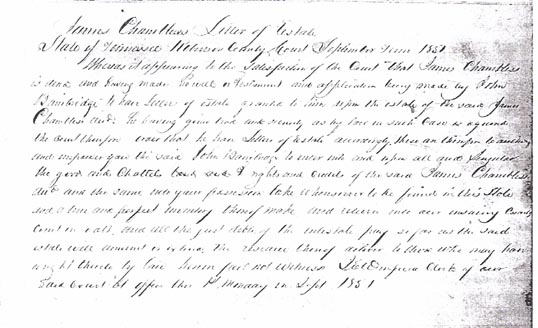 James Chambless Letter of Estate
State of Tennessee Robinson County Court September Term 1851
Whereas it appearing to the Satisfaction of the Court that James Chambless
is dead and having made no will or testament and application being made by John
Bainbridge to have Letters of estate granted to him upon the estate of the said James
Chambless decd he having given bond and security as by law in such case is required
the Court therefore order that he have letters of estate accordingly these are therefore to authorize
and empower you the said John Bainbridge to enter into and upon all and Singular
the goods and Chattels rights and credits of the said James Chambless
decd and the same into your possession take wheresoever to be found in this State
and a true and perfect inventory thereof make and return into our ensuing County
Court on oath, and all the just debts of the intestate pay so far as the said
estate will amount or extend, the residue thereof deliver to those who may have
a right thereto by law herein fail not witness Clerk of our
said Court at office this 1st Monday in Sept 1851